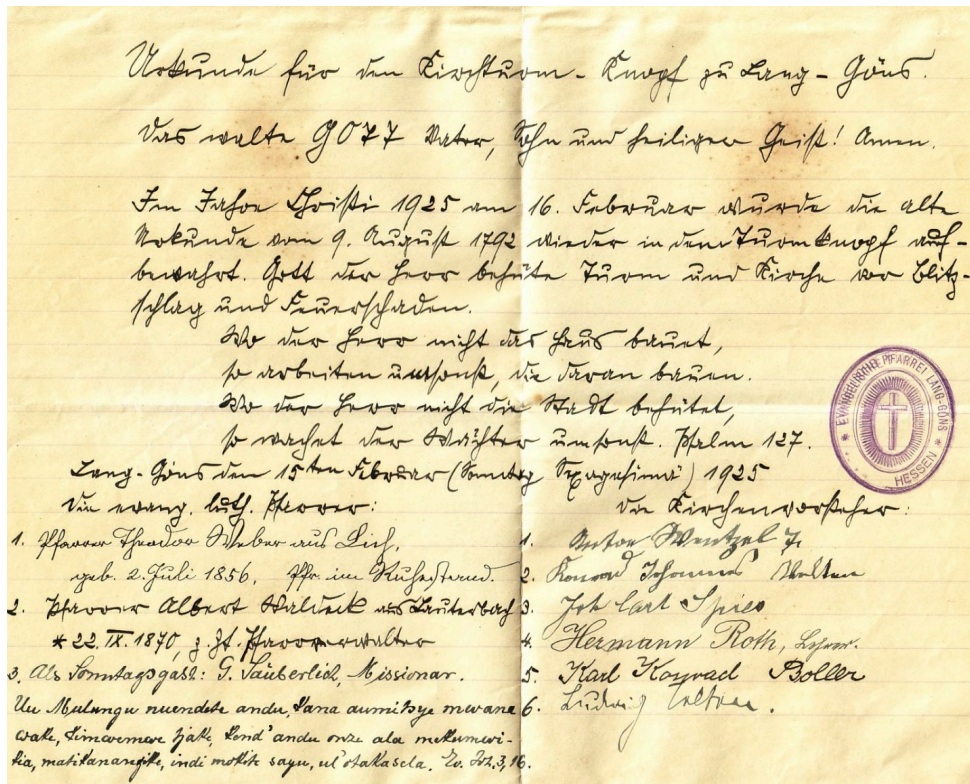 Urkunde für den Kirchturm-Knopf zu Lang-Göns.
Das walte GOTT Vater, Sohn und heiliger Geist! Amen.
Im Jahre Christi 1925 am 16. Februar wurde die alte
Urkunde vom 9. August 1792 wieder in dem Turmknopf auf-
bewahrt. Gott der Herr behüte Turm und Kirche vor Blitz-
schlag und Feuerschaden.
Wo der Herr nicht das Haus bauet,
so arbeiten umsonst, die daran bauen.
Wo der Herr nicht die Stadt behütet,
so wachet der Wächter umsonst. Psalm 127.
EVANGELISCHE PFARREI LANG-GÖNS
HESSEN
Lang-Göns den 15ten Februar (Sonntag Sexagesimä) 1925
Die evang. luth. Pfarrer:
1. Pfarrer Theodor Weber aus Lich,
geb. 2. Juli 1856, Pfr. im Ruhestand.
2. Pfarrer Albert Waldeck aus Lauterbach
* 22. IX. 1870, z. Zt. Pfarrverwalter
3. Als Sonntagsgast: G. Säuberlich, Missionar.
Uu Mulungu nuendete andu, kana aumitsye mwana
wake, kimwemwe
metumwi-
tia, indi motite sayu, Ev. Joh. 3, 16.
Die Kirchenvorsteher:
1. Anton Wentzel
2. Konrad Johannes Velten
3. Joh Carl Spies
4. Hermann Roth, Lehrer.
5. Karl Konrad Boller
6. Ludwig